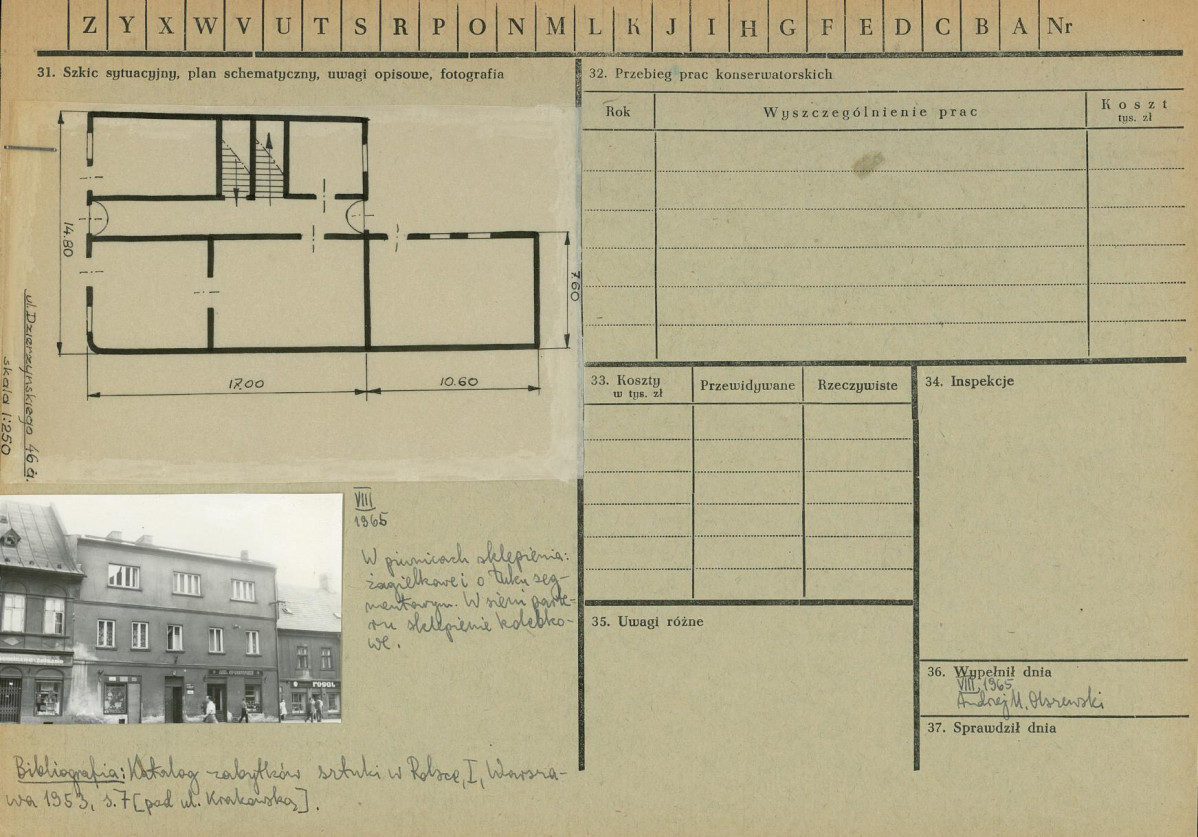 Z Y X W V U T S R P O N M L K J I H G F E D C B A Nr
31. Szkic sytuacyjny, plan schematyczny, uwagi opisowe, fotografia
14.80
7.60
17.00
10.60
ul. Dzierżyńskiego 46 a.
skala 1:250
VIII
1965
W piwnicach sklepienia:
żagielkowe i o łuku seg-
mentowym. W sieni parte-
ru sklepienie kolebko-
we.
Bibliografia: Katalog zabytków sztuki w Polsce, I, Warsza-
wa 1953, s. 7 [pod ul. Krakowską].
32. Przebieg prac konserwatorskich
Rok Wyszczególnienie prac Koszt
tys. zł
33. Koszty
w tys. zł
Przewidywane
Rzeczywiste
34. Inspekcje
35. Uwagi różne
36. Wypełnił dnia
VIII 1965
Andrzej K. Olszewski
37. Sprawdził dnia